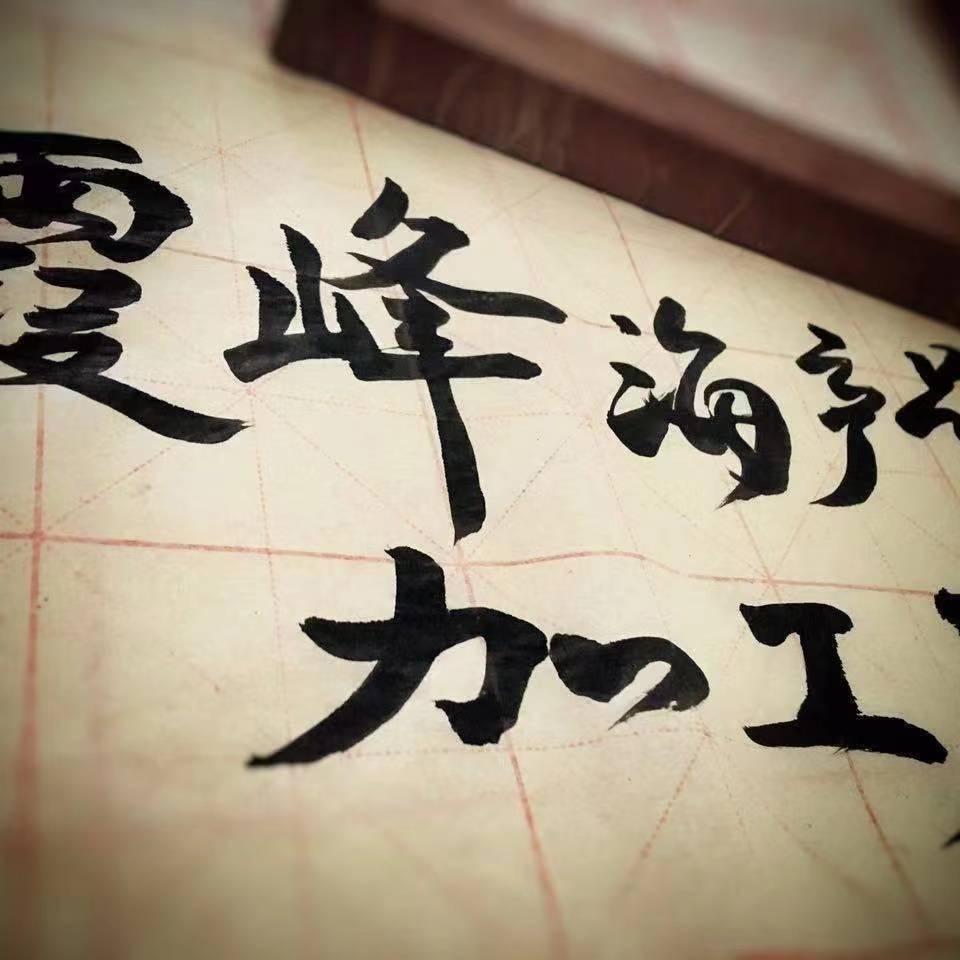 霞峰海亭
加工